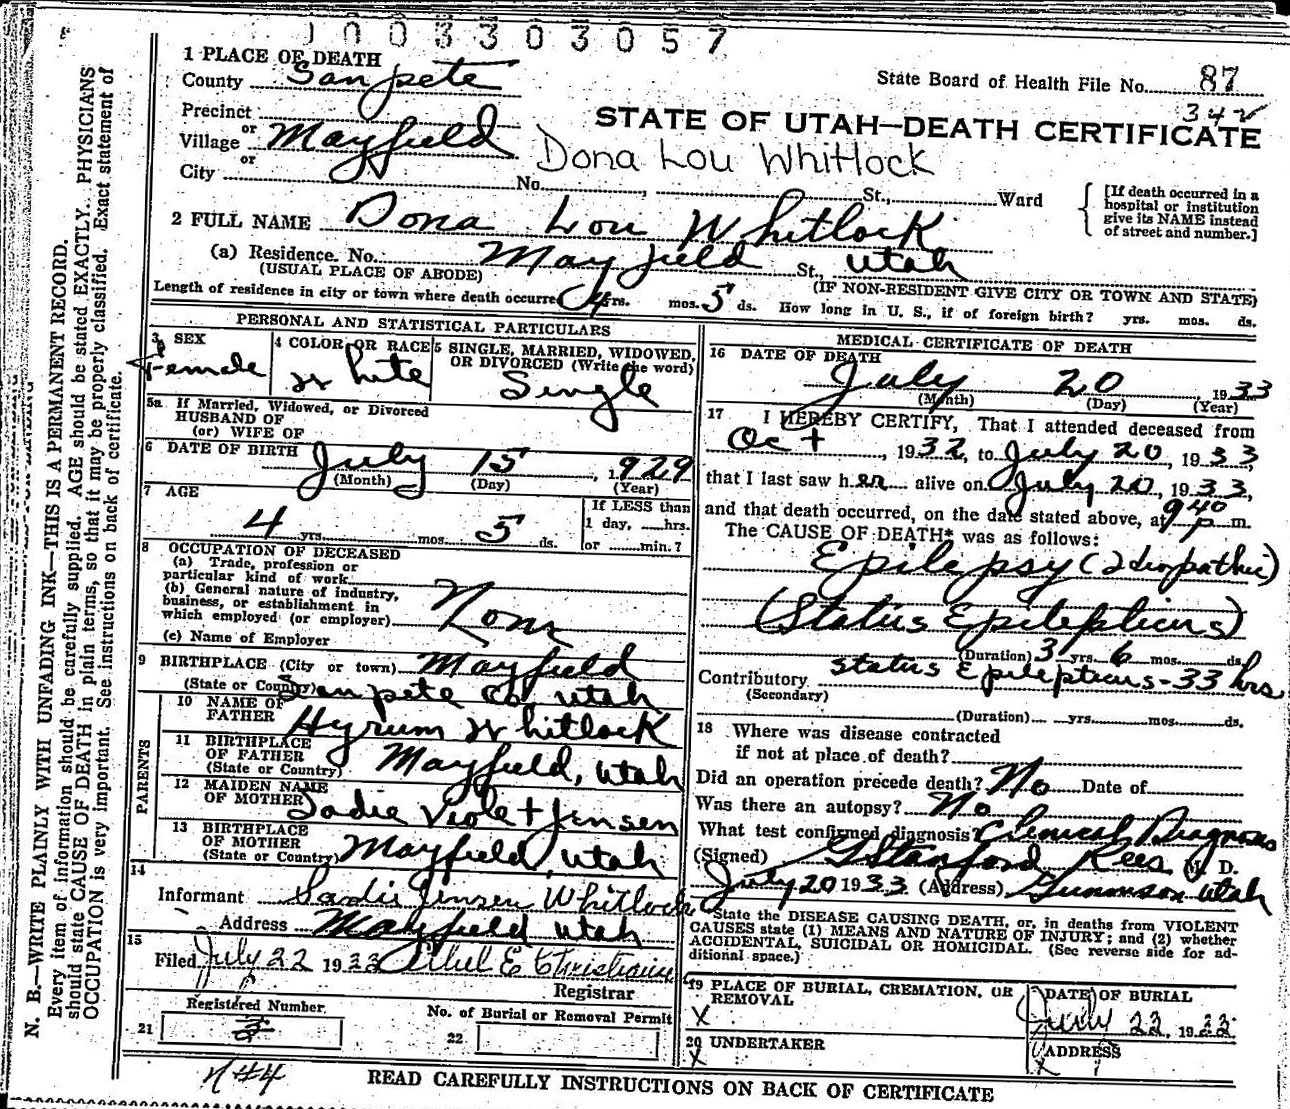 1003303057
1 PLACE OF DEATH
County Sanpete
State Board of Health File No. 87
342
Precinct
or
Village Mayfield
or
City
STATE OF UTAH—DEATH CERTIFICATE
Dona Lou Whitlock
No. , St., Ward
[If death occurred in a
hospital or institution
give its NAME instead
of street and number.]
2 FULL NAME Dona Lou Whitlock
(a) Residence. No. Mayfield St., Utah
(USUAL PLACE OF ABODE) (IF NON-RESIDENT GIVE CITY OR TOWN AND STATE)
Length of residence in city or town where death occurre 4 yrs. mos. 5 ds. How long in U. S., if of foreign birth? yrs. mos. ds.
PERSONAL AND STATISTICAL PARTICULARS
3 SEX
Female
4 COLOR OR RACE
White
5 SINGLE, MARRIED, WIDOWED,
OR DIVORCED (Write the word)
Single
5a If Married, Widowed, or Divorced
HUSBAND OF
(or) WIFE OF
6 DATE OF BIRTH July 15, 1929
(Month) (Day) (Year)
7 AGE
4 yrs. mos. 5 ds.
If LESS than
1 day, hrs.
or min.?
8 OCCUPATION OF DECEASED
(a) Trade, profession or
particular kind of work
(b) General nature of industry,
business, or establishment in
which employed (or employer) None
(c) Name of Employer
9 BIRTHPLACE (City or town) Mayfield
(State or County) Sanpete Co, Utah
PARENTS
10 NAME OF
FATHER Hyrum Whitlock
11 BIRTHPLACE
OF FATHER
(State or Country) Mayfield, Utah
12 MAIDEN NAME
OF MOTHER Sadie Violet Jensen
13 BIRTHPLACE
OF MOTHER
(State or Country) Mayfield, Utah
14
Informant Sadie Jensen Whitlock
Address Mayfield Utah
15
Filed July 22 1933 Ethel E Christiansen
Registrar
Registered Number
21
No. of Burial or Removal Permit
22
MEDICAL CERTIFICATE OF DEATH
16 DATE OF DEATH
July 20 1933
(Month) (Day) (Year)
17 I HEREBY CERTIFY, That I attended deceased from
Oct , 1932, to July 20, 1933,
that I last saw her alive on July 20, 1933,
and that death occurred, on the date stated above, at 9 40 p m.
The CAUSE OF DEATH* was as follows:
Epilepsy (Idiopathic)
(Status Epilepticus)
(Duration) 3 yrs. 6 mos. ds.
Contributory status Epilepticus - 33 hrs
(Secondary)
(Duration) yrs. mos. ds.
18 Where was disease contracted
if not at place of death?
Did an operation precede death? No Date of
Was there an autopsy? No
What test confirmed diagnosis? Clinical Diagnosis
(Signed) G Stanford Rees M. D.
July 20 1933 (Address) Gunnison Utah
State the DISEASE CAUSING DEATH, or, in deaths from VIOLENT
CAUSES state (1) MEANS AND NATURE OF INJURY; and (2) whether
ACCIDENTAL, SUICIDAL OR HOMICIDAL. (See reverse side for ad-
ditional space.)
19 PLACE OF BURIAL, CREMATION, OR
REMOVAL
X
DATE OF BURIAL
July 22, 1933
20 UNDERTAKER
X
ADDRESS
X
READ CAREFULLY INSTRUCTIONS ON BACK OF CERTIFICATE
N. B.—WRITE PLAINLY WITH UNFADING INK—THIS IS A PERMANENT RECORD.
Every item of information should be carefully supplied. AGE should be stated EXACTLY. PHYSICIANS
should state CAUSE OF DEATH in plain terms, so that it may be properly classified. Exact statement of
OCCUPATION is very important. See instructions on back of certificate.